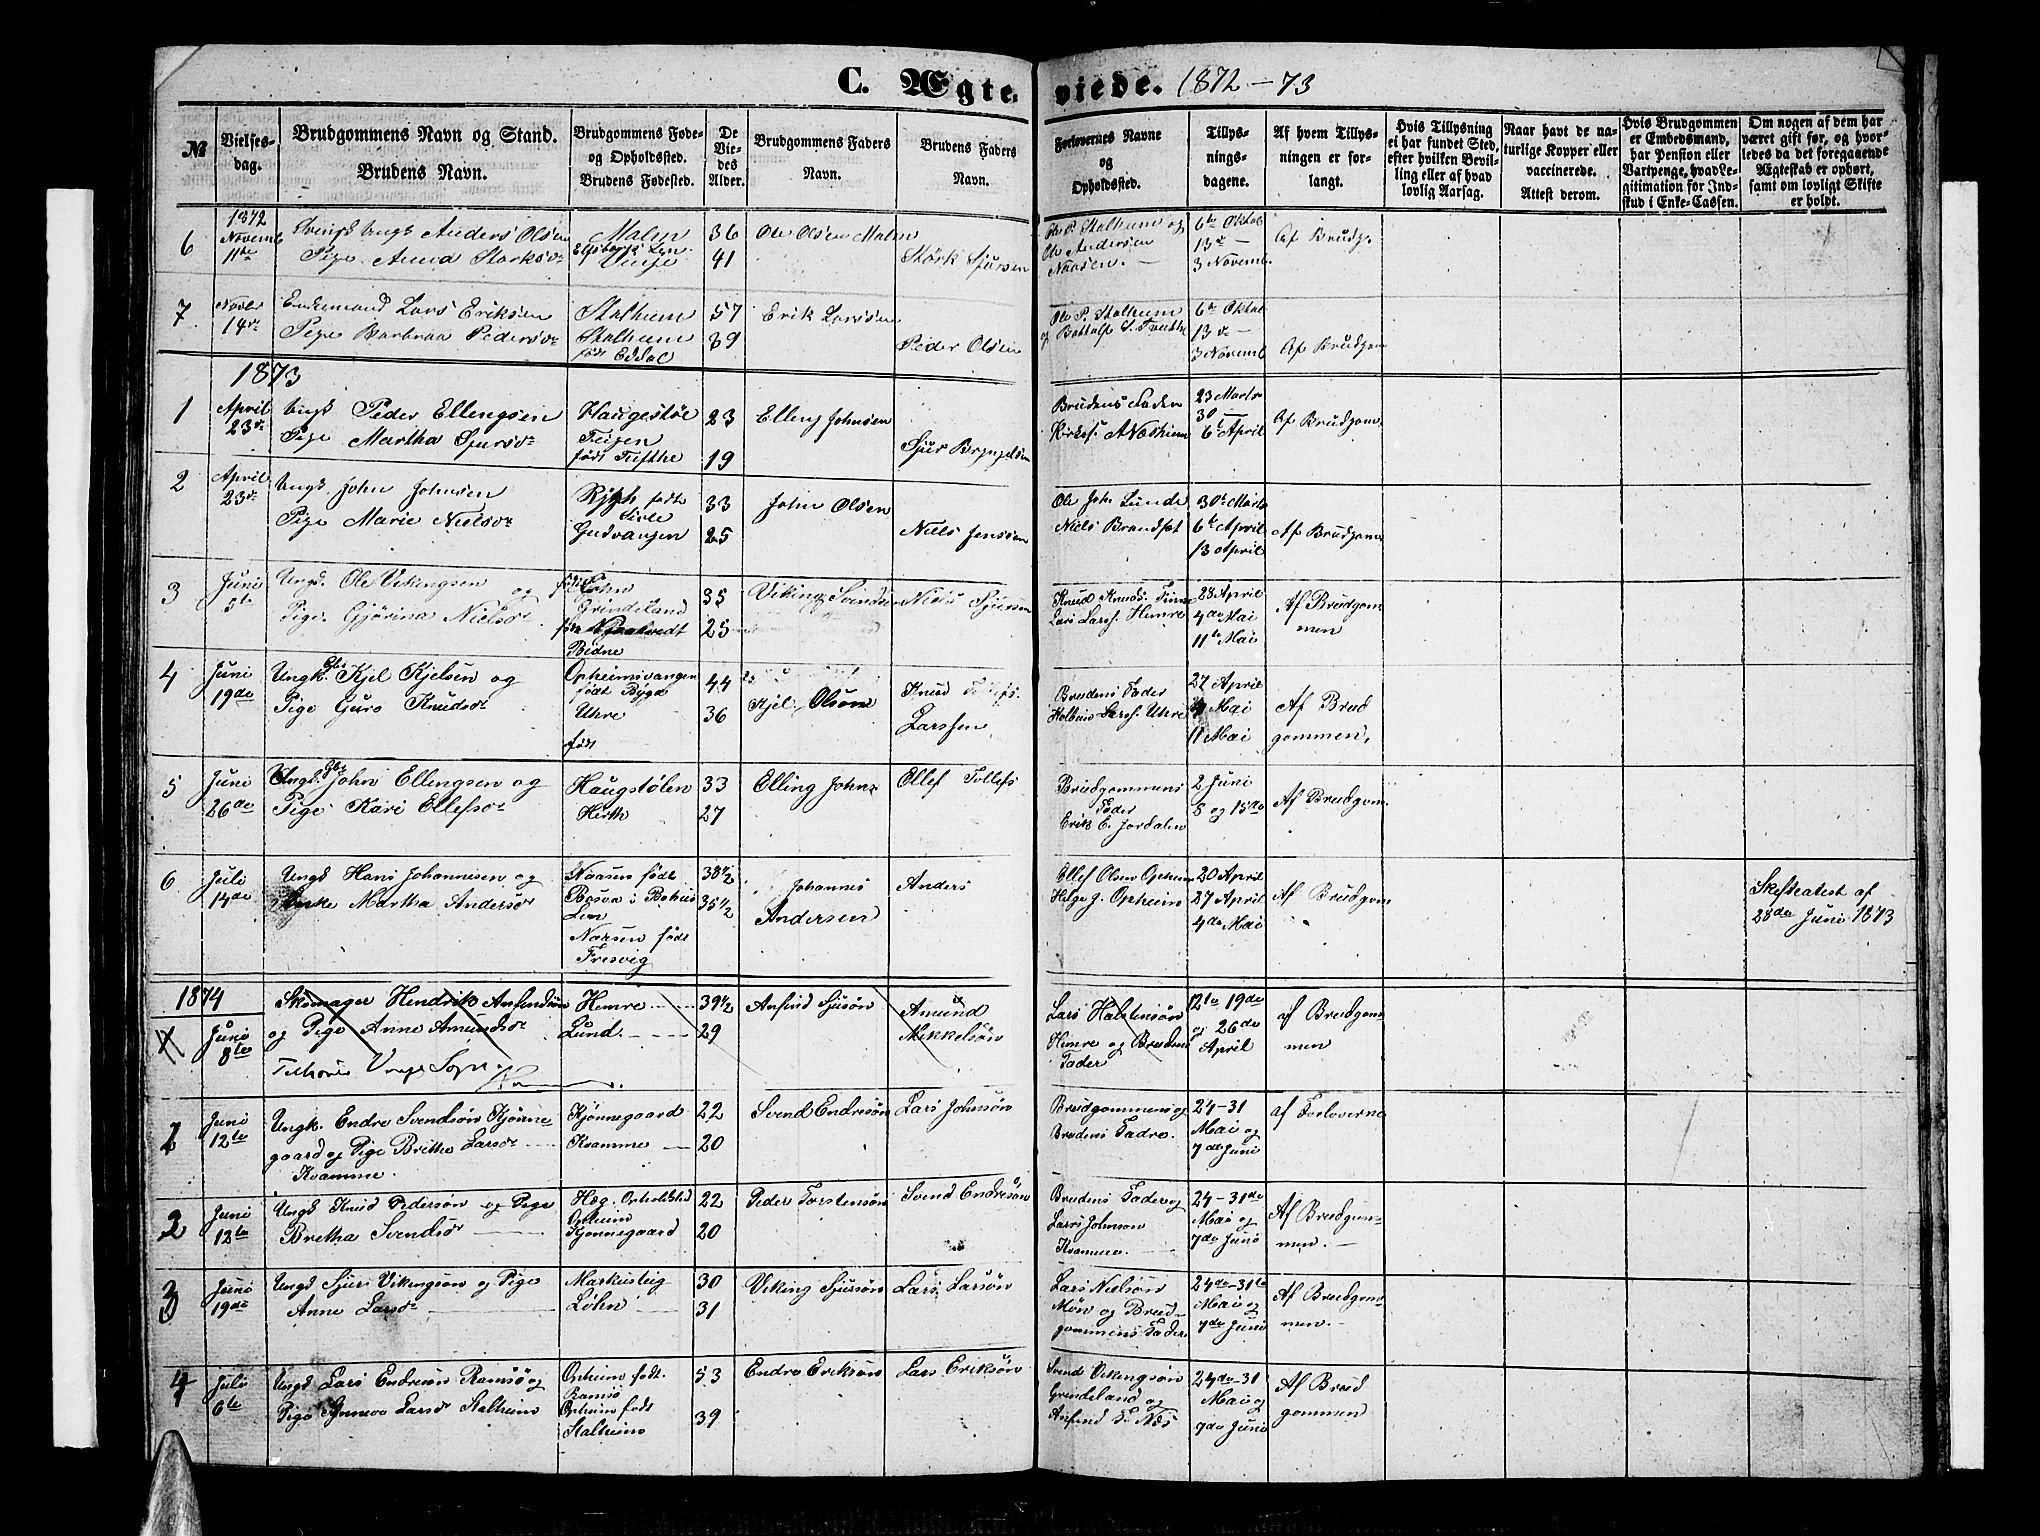 C. Ægteviede. 1872-73
№
Vielsesdag.
Brudgommens Navn og Stand.
Brudens Navn.
Brudgommens Føde-
og Opholdssted.
Brudens Fødested.
De
Vie-
des
Alder.
Brudgommens Faders
Navn.
Brudens Faders
Navn.
Forlovernes Navne
og
Opholdssted.
Tillys-
nings-
dagene.
Af hvem Tillys-
ningen er for-
langt.
Hvis Tillysning
ei har fundet Sted,
efter hvilken Bevil-
ling eller af hvad
lovlig Aarsag.
Naar havt de na-
turlige Kopper eller
vaccinerede.
Attest derom.
Hvis Brudgommen
er Embedsmand,
har Pension eller
Vartpenge, hvad Le-
gitimation for Ind-
skud i Enke-Cassen.
Om nogen af dem har
været gift før, og hvor-
ledes da det foregaaende
Ægteskab er ophørt,
samt om lovligt Skifte
er holdt.
1872
6 Novemb 11te
Ungk Anders Olsen
Pige Anna Størksdr
Malm
Elfsborgs Len
Vinje
36
41
Ole Olsen Malm
Størk Sjursen
Ole P. Stalheim og
Ole Andersen
Naasen.
6te Oktob
13de —
3 Novemb.
Af Brudg.
7 Novbr 14de
Enkemand Lars Eriksen
Pige Barbraa Pedersdr
Stalheim
Stalheim
født
57
39
Erik Larsen
Peder Olsen
Ole P. Stalheim
og Bottolf S.
6te Oktob
13de —
3 Novemb
Af Brudgom
1873
1 April 23de
Ungk Peder Ellengsen
Pige Martha Sjursdr
Haugestøe
født Tufthe
23
19
Elleng Johnsen
Sjur Bryngelsen
Brudens Fader
Kirkes. A Næsheim
23 Marts
30 —
6te April
Af Brudgom
2 April 23de
Ungk John Johnsen
Pige Marie Nielsdr
født
Sivle
Gudvangen
33
25
John Olsen
Niels Jensen
Ole Joh. Lunde
Niels Brandset
30te Marts
6te April
13 April
Af Brudgom
3 Juni 5te
Ungk. Ole Vikingsen og
Pige. Gjørina Nielsdr
født Løhn
Grindeland
Bidne
35
25
Viking Svendsen
Niels Sjursen
Knud Knuds. Finne
Lars Larss. Hemre
28 April
4de Mai
11te Mai
Af Brudgom
men
4 Juni 19de
Ungk. Gbr Kjel Kjelsen og
Pige Guro Knudsdr
Opheimsvangen
født Bygd
Uhre
født
44
36
Kjel Olsen
Knud
Larssen
Brudens Fader
Larss. Uhre
27 April
4 Mai
11 Mai
Af Brud
gommen,
5 Juni 26de
Ungk. Gbr John Ellengsen og
Pige Kari Ellefsdr
Haugstølen
Herth
33
27
Elling Johns
Ellef Tollefs
Brudgommens
Fader
Erik E. Jordalen
2 Juni
8 og 15de
Af Brudgom
6 Juli 14de
Ungk Hans Johannesen og
Enke Martha Andersdr
Naasen født
i Bohus
Len
Nærsen født
Fresvig
38 1/2
35 1/2
Johannes
Andersen
Anders
Ellef Olsen Opheim
Helge J. Opheim
20 April
27 April
4de Mai
Af Brudgom
Skifteatest af
28de Juni 1873
1874
Juni 8te
Skomager Hendrik Anfindsøn
og Pige Anne Amundsdr
Hemre
Lund.
39 1/2
29
Anfind Sjursøn
Amund
Mikkelsøn
Lars Halstensøn
Hemre og Brudens
Fader
12te 19de
og 26de
April
af Brudgom
men
1 Juni 12te
Ungk. Endre Svendsøn Kjønne
gaard og Pige Britha Larsdr
Kvamme.
Kjønnegaard
Kvamme
22
20
Svend Endresøn
Lars Johnsøn
Brudgommens og
Brudens Fadre.
24-31
Mai og
7de Juni
af Forloverne
2 Juni 12te
Ungk Knud Pedersøn og Pige
Bretha Svendsdr
Hæg. Opholdsted
Opheim
Kjønnegaard
22
20
Peder Torstensøn
Svend Endresøn
Brudens Fader og
Lars Johnsøn
Kvamme.
24-31de
Mai og
7de Juni
Af Brudgom-
men.
3 Juni 19de
Ungk Sjurs Vikingsøn og Pige
Anne Larsdr
Markusteig
Løhn
30
31
Viking Sjursøn
Lars Larsøn
Lars Nielsøn
Møn og Brud-
gommens Fader.
24de-31te
Mai og
7de Juni
Af Brudgom-
men.
4 Juli 6te
Ungk Lars Endresøn Ramsø og
Pige Synneva Larsdr Stalheim
Opheim født.
Ramsø
Opheim født
Stalheim
53
39
Endre Eriksøn
Lars Eriksøn
Svend Vikingsøn
Grindeland og
Anfind S. Næs
24de-31
Mai og
7de Juni
Af Brud
gommen